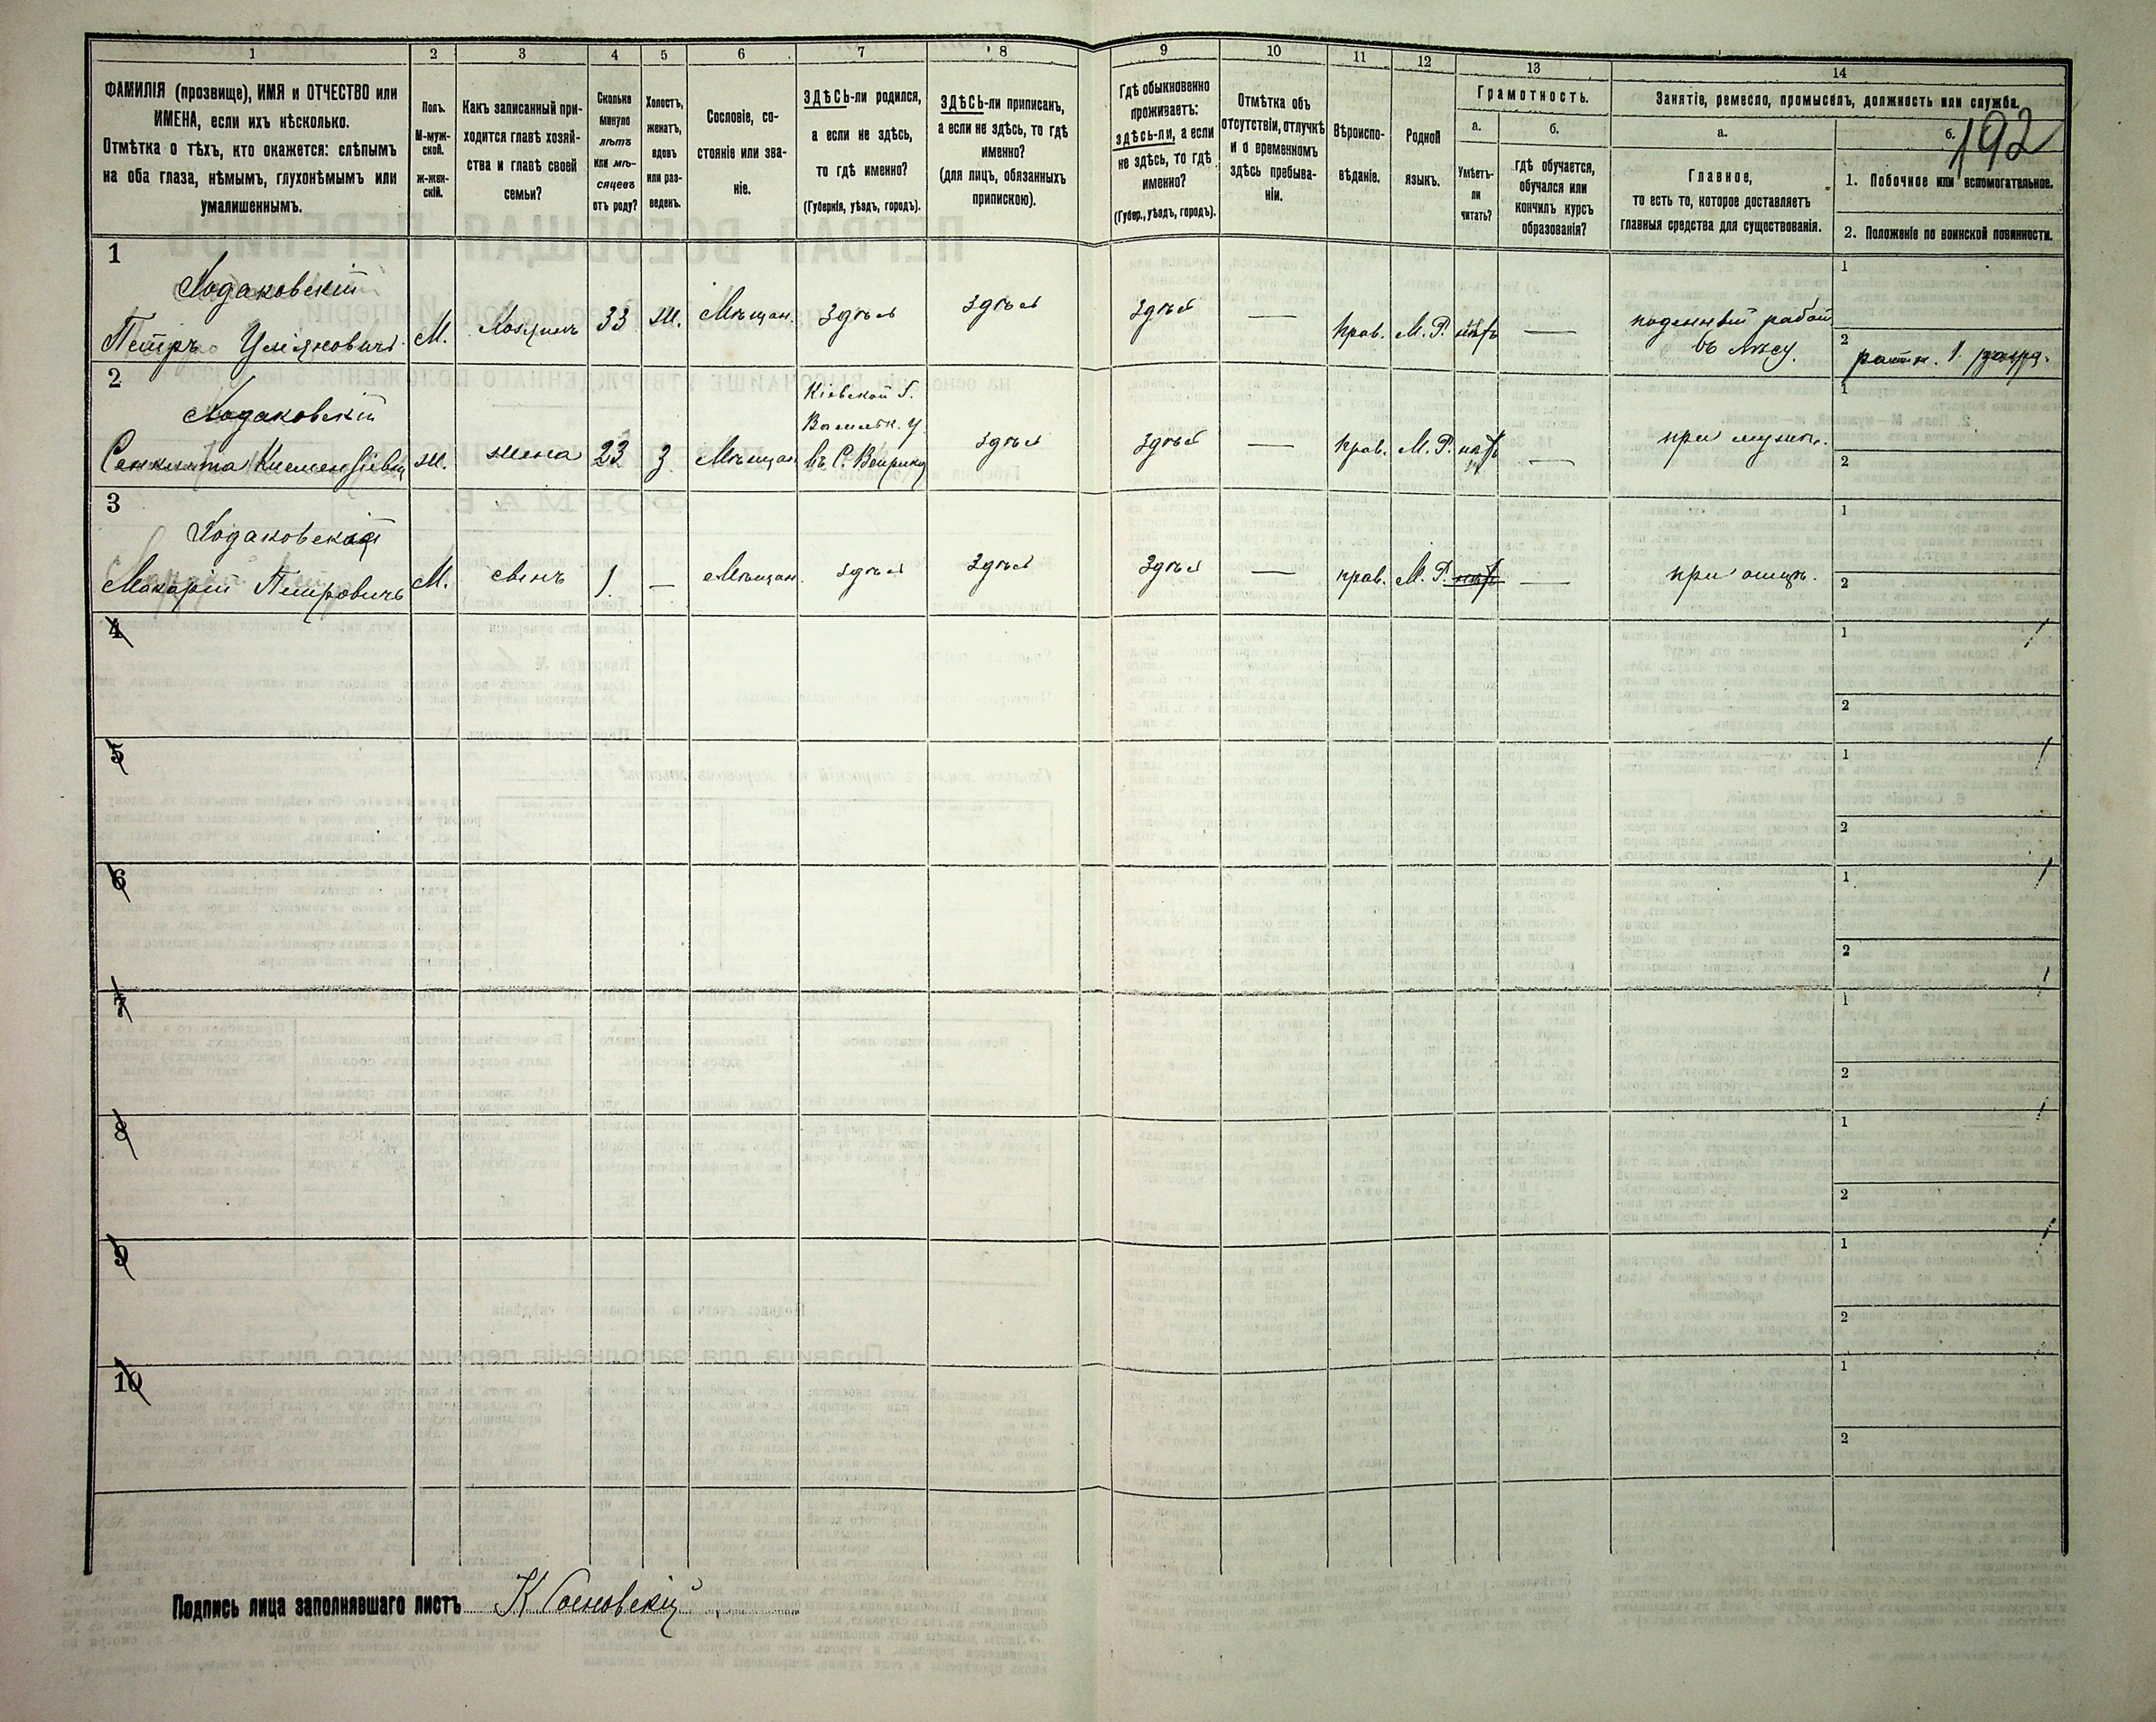 192
1 2 3 4 5 6 7 8 9 10 11 12 13 14
ФАМИЛІЯ (прозвище), ИМЯ и ОТЧЕСТВО или
ИМЕНА, если ихъ нѣсколько.
Отмѣтка о тѣхъ, кто окажется: слѣпымъ
на оба глаза, нѣмымъ, глухонѣмымъ или
умалишеннымъ.
Полъ.
М-муж-
ской.
ж-жен-
скій.
Какъ записанный при-
ходится главѣ хозяй-
ства и главѣ своей
семьи?
Сколько
минуло
лѣтъ
или мѣ-
сяцевъ
отъ роду?
Холостъ,
женатъ,
вдовъ
или раз-
веденъ.
Сословіе, со-
стояніе или зва-
ніе.
ЗДѢСЬ-ли родился,
а если не здѣсь,
то гдѣ именно?
(Губернія, уѣздъ, городъ).
ЗДѢСЬ-ли приписанъ,
а если не здѣсь, то гдѣ
именно?
(для лицъ, обязанныхъ
припискою).
Гдѣ обыкновенно
проживаетъ:
здѣсь-ли, а если
не здѣсь, то гдѣ
именно?
(Губер., уѣздъ, городъ).
Отмѣтка объ
отсутствіи, отлучкѣ
и о временномъ
здѣсь пребыва-
ніи.
Вѣроиспо-
вѣданіе.
Родной
языкъ.
Грамотность.
а.
Умѣетъ-
ли
читать?
б.
гдѣ обучается,
обучался или
кончилъ курсъ
образованія?
Занятіе, ремесло, промыселъ, должность или служба.
а.
Главное,
то есть то, которое доставляетъ
главныя средства для существованія.
б.
1. Побочное или вспомогательное.
2. Положеніе по воинской повинности.
1
Ходаковскій
Петръ Ульяновичъ М. Хозяинъ 33 ж. Мѣщан. здѣсь здѣсь здѣсь — прав. М. Р. нѣтъ —
поденный работ
въ лѣсу.
1
2 ратн. 1 разря.
2
Ходаковскій
Климентіевна ж. жена 23 з. Мѣщан.
Кіевской Г.
Васильк. у.
въ С.
здѣсь здѣсь — прав. М. Р. нѣтъ — при мужѣ.
1
2
3
Ходаковская
Макарій Петровичъ М. сынъ 1. — Мѣщан. здѣсь здѣсь здѣсь — прав. М. Р. нѣтъ — при отцѣ.
1
2
4 1
2
5 1
2
6 1
2
7 1
2
8 1
2
9 1
2
10 1
2
Подпись лица заполнявшаго листъ К